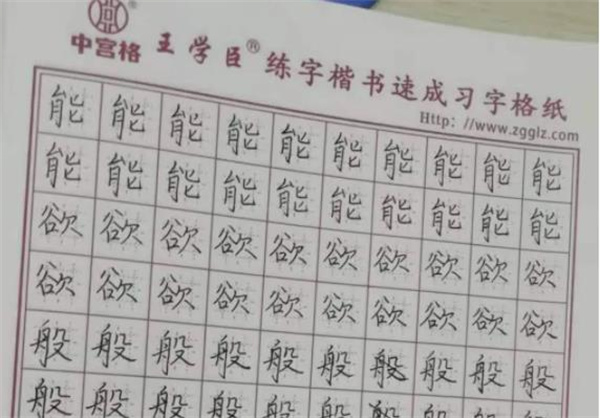 中宫格® 王学臣® 练字楷书速成习字格纸
Http：//www.zgglz.com
能能能能能能能能能能
能能能能能能能能能能
欲欲欲欲欲欲欲欲欲欲
欲欲欲欲欲欲欲欲欲欲
般般般般般般般般般般
般般般般般般般般般般